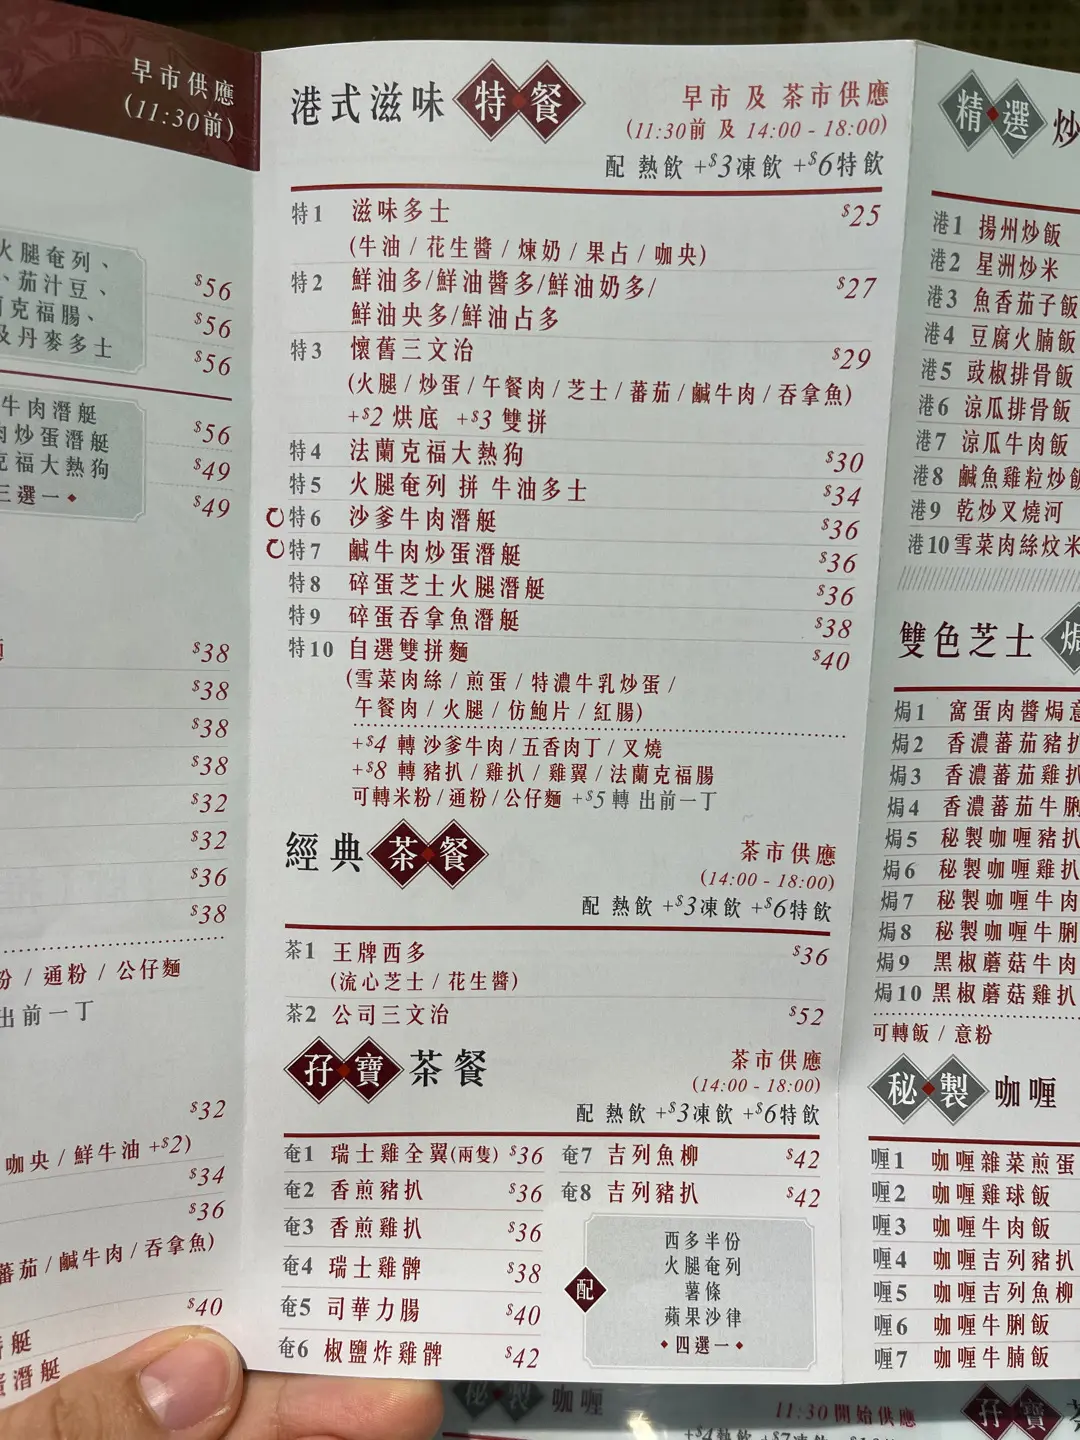 早市供應
(11:30前)
火腿奄列、
、茄汁豆、
克福腸、
及丹麥多士
$56
$56
$56
牛肉潛艇
炒蛋潛艇
克福大熱狗
三選一
$56
$49
$49
$38
$38
$38
$38
$32
$32
$36
$38
/ 通粉 / 公仔麵
出前一丁
$32
咖央 / 鮮牛油 +$2)
$34
$36
蕃茄 / 鹹牛肉 / 吞拿魚)
$40
潛艇
潛艇
港式滋味 特餐
早市 及 茶市供應
(11:30前 及 14:00 - 18:00)
配 熱飲 +$3凍飲 +$6特飲
特1 滋味多士 $25
(牛油 / 花生醬 / 煉奶 / 果占 / 咖央)
特2 鮮油多/鮮油醬多/鮮油奶多/ $27
鮮油央多/鮮油占多
特3 懷舊三文治 $29
(火腿 / 炒蛋 / 午餐肉 / 芝士 / 蕃茄 / 鹹牛肉 / 吞拿魚)
+$2 烘底 +$3 雙拼
特4 法蘭克福大熱狗 $30
特5 火腿奄列 拼 牛油多士 $34
特6 沙爹牛肉潛艇 $36
特7 鹹牛肉炒蛋潛艇 $36
特8 碎蛋芝士火腿潛艇 $36
特9 碎蛋吞拿魚潛艇 $38
特10 自選雙拼麵 $40
(雪菜肉絲 / 煎蛋 / 特濃牛乳炒蛋 /
午餐肉 / 火腿 / 仿鮑片 / 紅腸)
+$4 轉 沙爹牛肉 / 五香肉丁 / 叉燒
+$8 轉 豬扒 / 雞扒 / 雞翼 / 法蘭克福腸
可轉米粉 / 通粉 / 公仔麵 +$5 轉 出前一丁
經典 茶餐
茶市供應
(14:00 - 18:00)
配 熱飲 +$3凍飲 +$6特飲
茶1 王牌西多 $36
(流心芝士 / 花生醬)
茶2 公司三文治 $52
孖寶 茶餐
茶市供應
(14:00 - 18:00)
配 熱飲 +$3凍飲 +$6特飲
奄1 瑞士雞全翼(兩隻) $36
奄2 香煎豬扒 $36
奄3 香煎雞扒 $36
奄4 瑞士雞髀 $38
奄5 司華力腸 $40
奄6 椒鹽炸雞髀 $42
奄7 吉列魚柳 $42
奄8 吉列豬扒 $42
配
西多半份
火腿奄列
薯條
蘋果沙律
四選一
精選 炒
港1 揚州炒飯
港2 星洲炒米
港3 魚香茄子飯
港4 豆腐火腩飯
港5 豉椒排骨飯
港6 涼瓜排骨飯
港7 涼瓜牛肉飯
港8 鹹魚雞粒炒飯
港9 乾炒叉燒河
港10 雪菜肉絲炆米
雙色芝士 焗
焗1 窩蛋肉醬焗意
焗2 香濃蕃茄豬扒
焗3 香濃蕃茄雞扒
焗4 香濃蕃茄牛脷
焗5 秘製咖喱豬扒
焗6 秘製咖喱雞扒
焗7 秘製咖喱牛肉
焗8 秘製咖喱牛脷
焗9 黑椒蘑菇牛肉
焗10 黑椒蘑菇雞扒
可轉飯 / 意粉
秘製 咖喱
喱1 咖喱雜菜煎蛋
喱2 咖喱雞球飯
喱3 咖喱牛肉飯
喱4 咖喱吉列豬扒
喱5 咖喱吉列魚柳
喱6 咖喱牛脷飯
喱7 咖喱牛腩飯
秘製 咖喱
11:30開始供應
孖寶